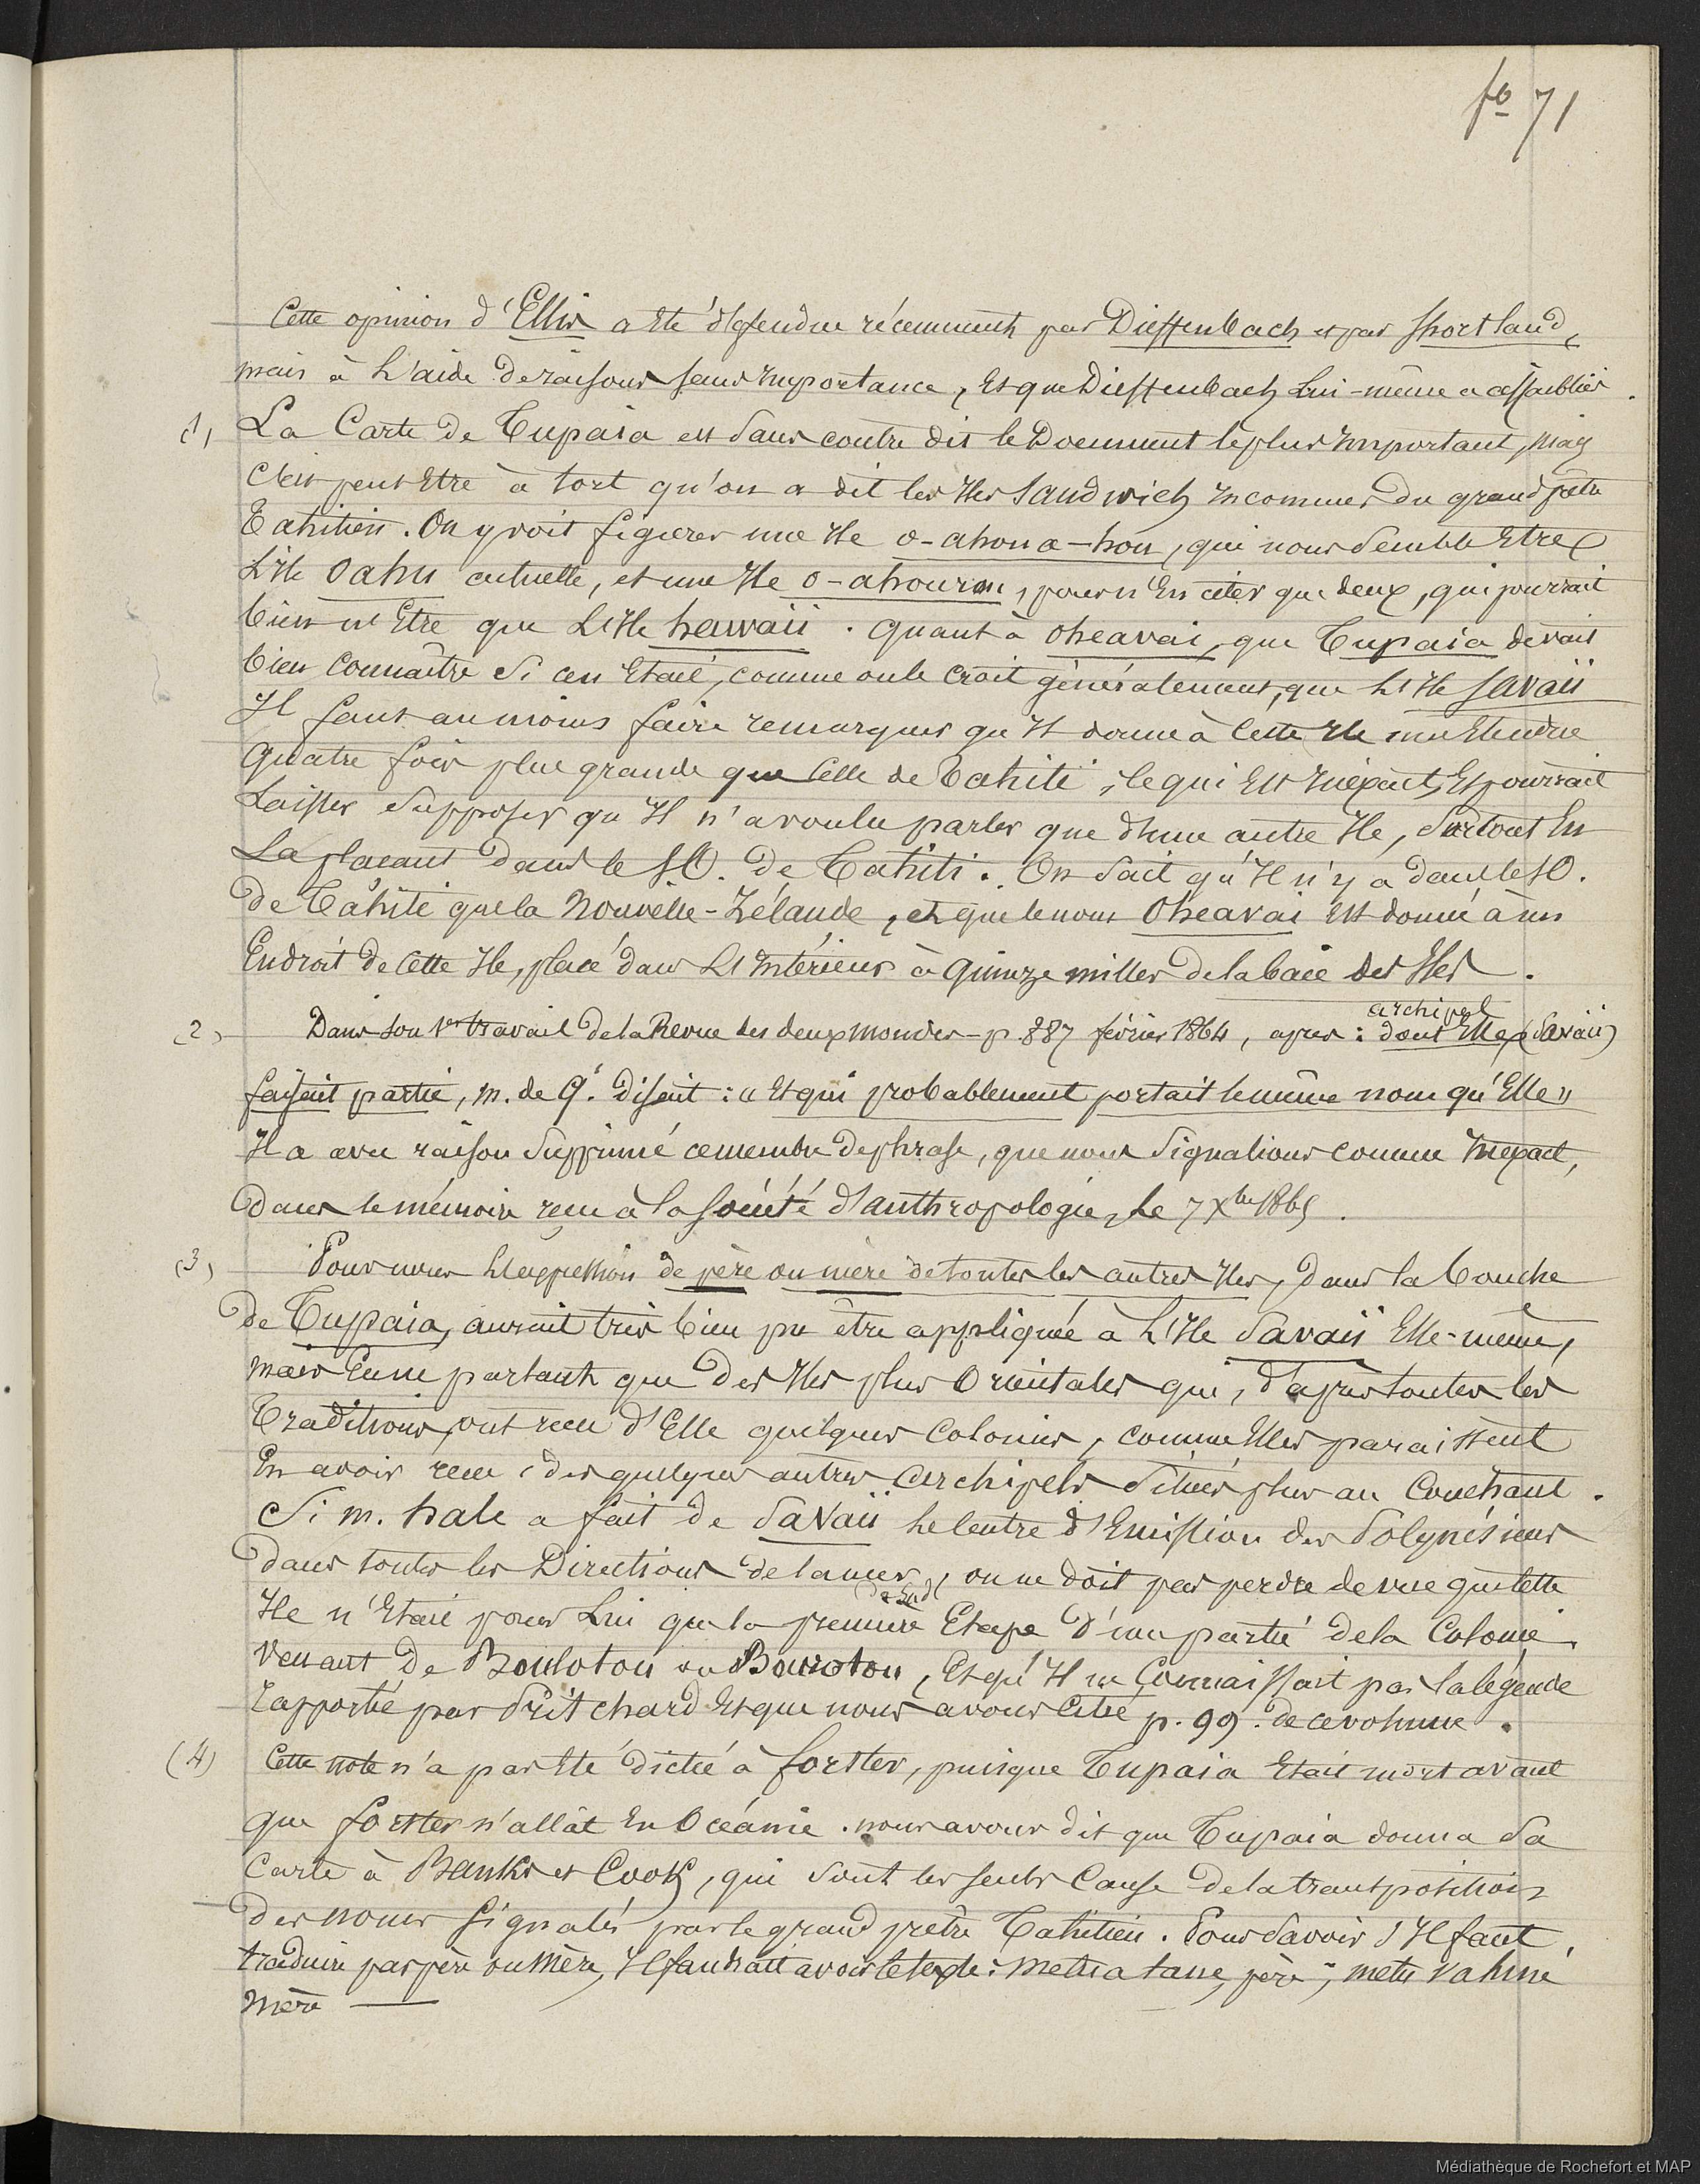 fo 71
Cette opinion d'Ellis a Eté défendue récemment par Dieffenbach et par Shortland,
mais à L'aide de raisons sans Importance, Et que Dieffenbach Lui-même a affaiblies.
(1) La Carte de Tupaia est sans contre dit le Document le plus Important, Mais
C'est peut Etre à tort qu'on a dit les Iles Sandwich Inconnues du grand prêtre
Tahitien. On y voit figurer une Ile o-ahoua-hou, qui nous semble Etre
L'Ile Oahu actuelle, et une Ile o-ahourou, pour n'En citer que deux, qui pourrait
bien n'Etre que L'Ile hawaii. Quant à Oheavai, que Tupaia devait
bien Connaître Si c'en Etait, comme on le Croit généralement, que L'Ile Savaii
Il faut au moins faire remarquer qu'Il donne à Cette Ile une Etendue
Quatre fois plus grande que Celle de Tahiti, ce qui Est Inexact, Et pourrait
Laisser Supposer qu'Il n'a voulu parler que d'une autre Ile, Surtout En
La plaçant dans le SO. de Tahiti. On Sait qu'Il n'y a dans le SO.
de Tahiti que la Nouvelle-Zélande, et que le nom Oheavai Est donné à un
Endroit de Cette Ile, placé dans L'Intérieur à Quinze milles de la baie des Iles.
archipel
(2) Dans son 1er travail de la Revue des deux mondes - p. 887 février 1864, après : dont Elle (Savaii)
faisait partie, m. de Q. disait : « Et qui probablement portait le même nom qu'Elle »
Il a avec raison Supprimé ce membre de phrase, que nous Signalions comme Inexact,
Dans le mémoire reçu à la Société d'anthropologie, Le 7 Xbre 1865.
(3) Pour nous L'Expression de père ou mère de toutes les autres Iles, dans la bouche
de Tupaia, aurait très bien pu être appliquée à L'Ile Savaii Elle-même,
mais En ne parlant que des Iles plus Orientales qui, d'après toutes les
Traditions, ont reçu d'Elle quelques Colonies, comme Elles paraissent
En avoir reçu de quelques autres archipels Situés plus au Couchant.
Si m. hale a fait de Savaii Le Centre d'Emission des Polynésiens
dans toutes les Directions de la mer, on ne doit pas perdre de vue que Cette
Ile n'Etait pour Lui que la première Etape d'une partie de la Colonie
Venant de Boulotou ou Bourotou, Et qu'Il ne Connaissait pas la légende
rapportée par Pritchard Et que nous avons Citée p. 99. de ce volume.
(4) Cette note n'a pas Eté dictée à forster, puisque Tupaia Etait mort avant
que forster n'allât En Océanie. nous avons dit que Tupaia donna Sa
Carte à Banks et Cook, qui Sont les seuls Cause de la transposition
des noms Signalés par le grand prêtre Tahitien. Pour Savoir S'Il faut
traduire par père ou Mère, Il faudrait avoir le texte : metua tane, père ; metu vahine
mère
Médiathèque de Rochefort et MAP